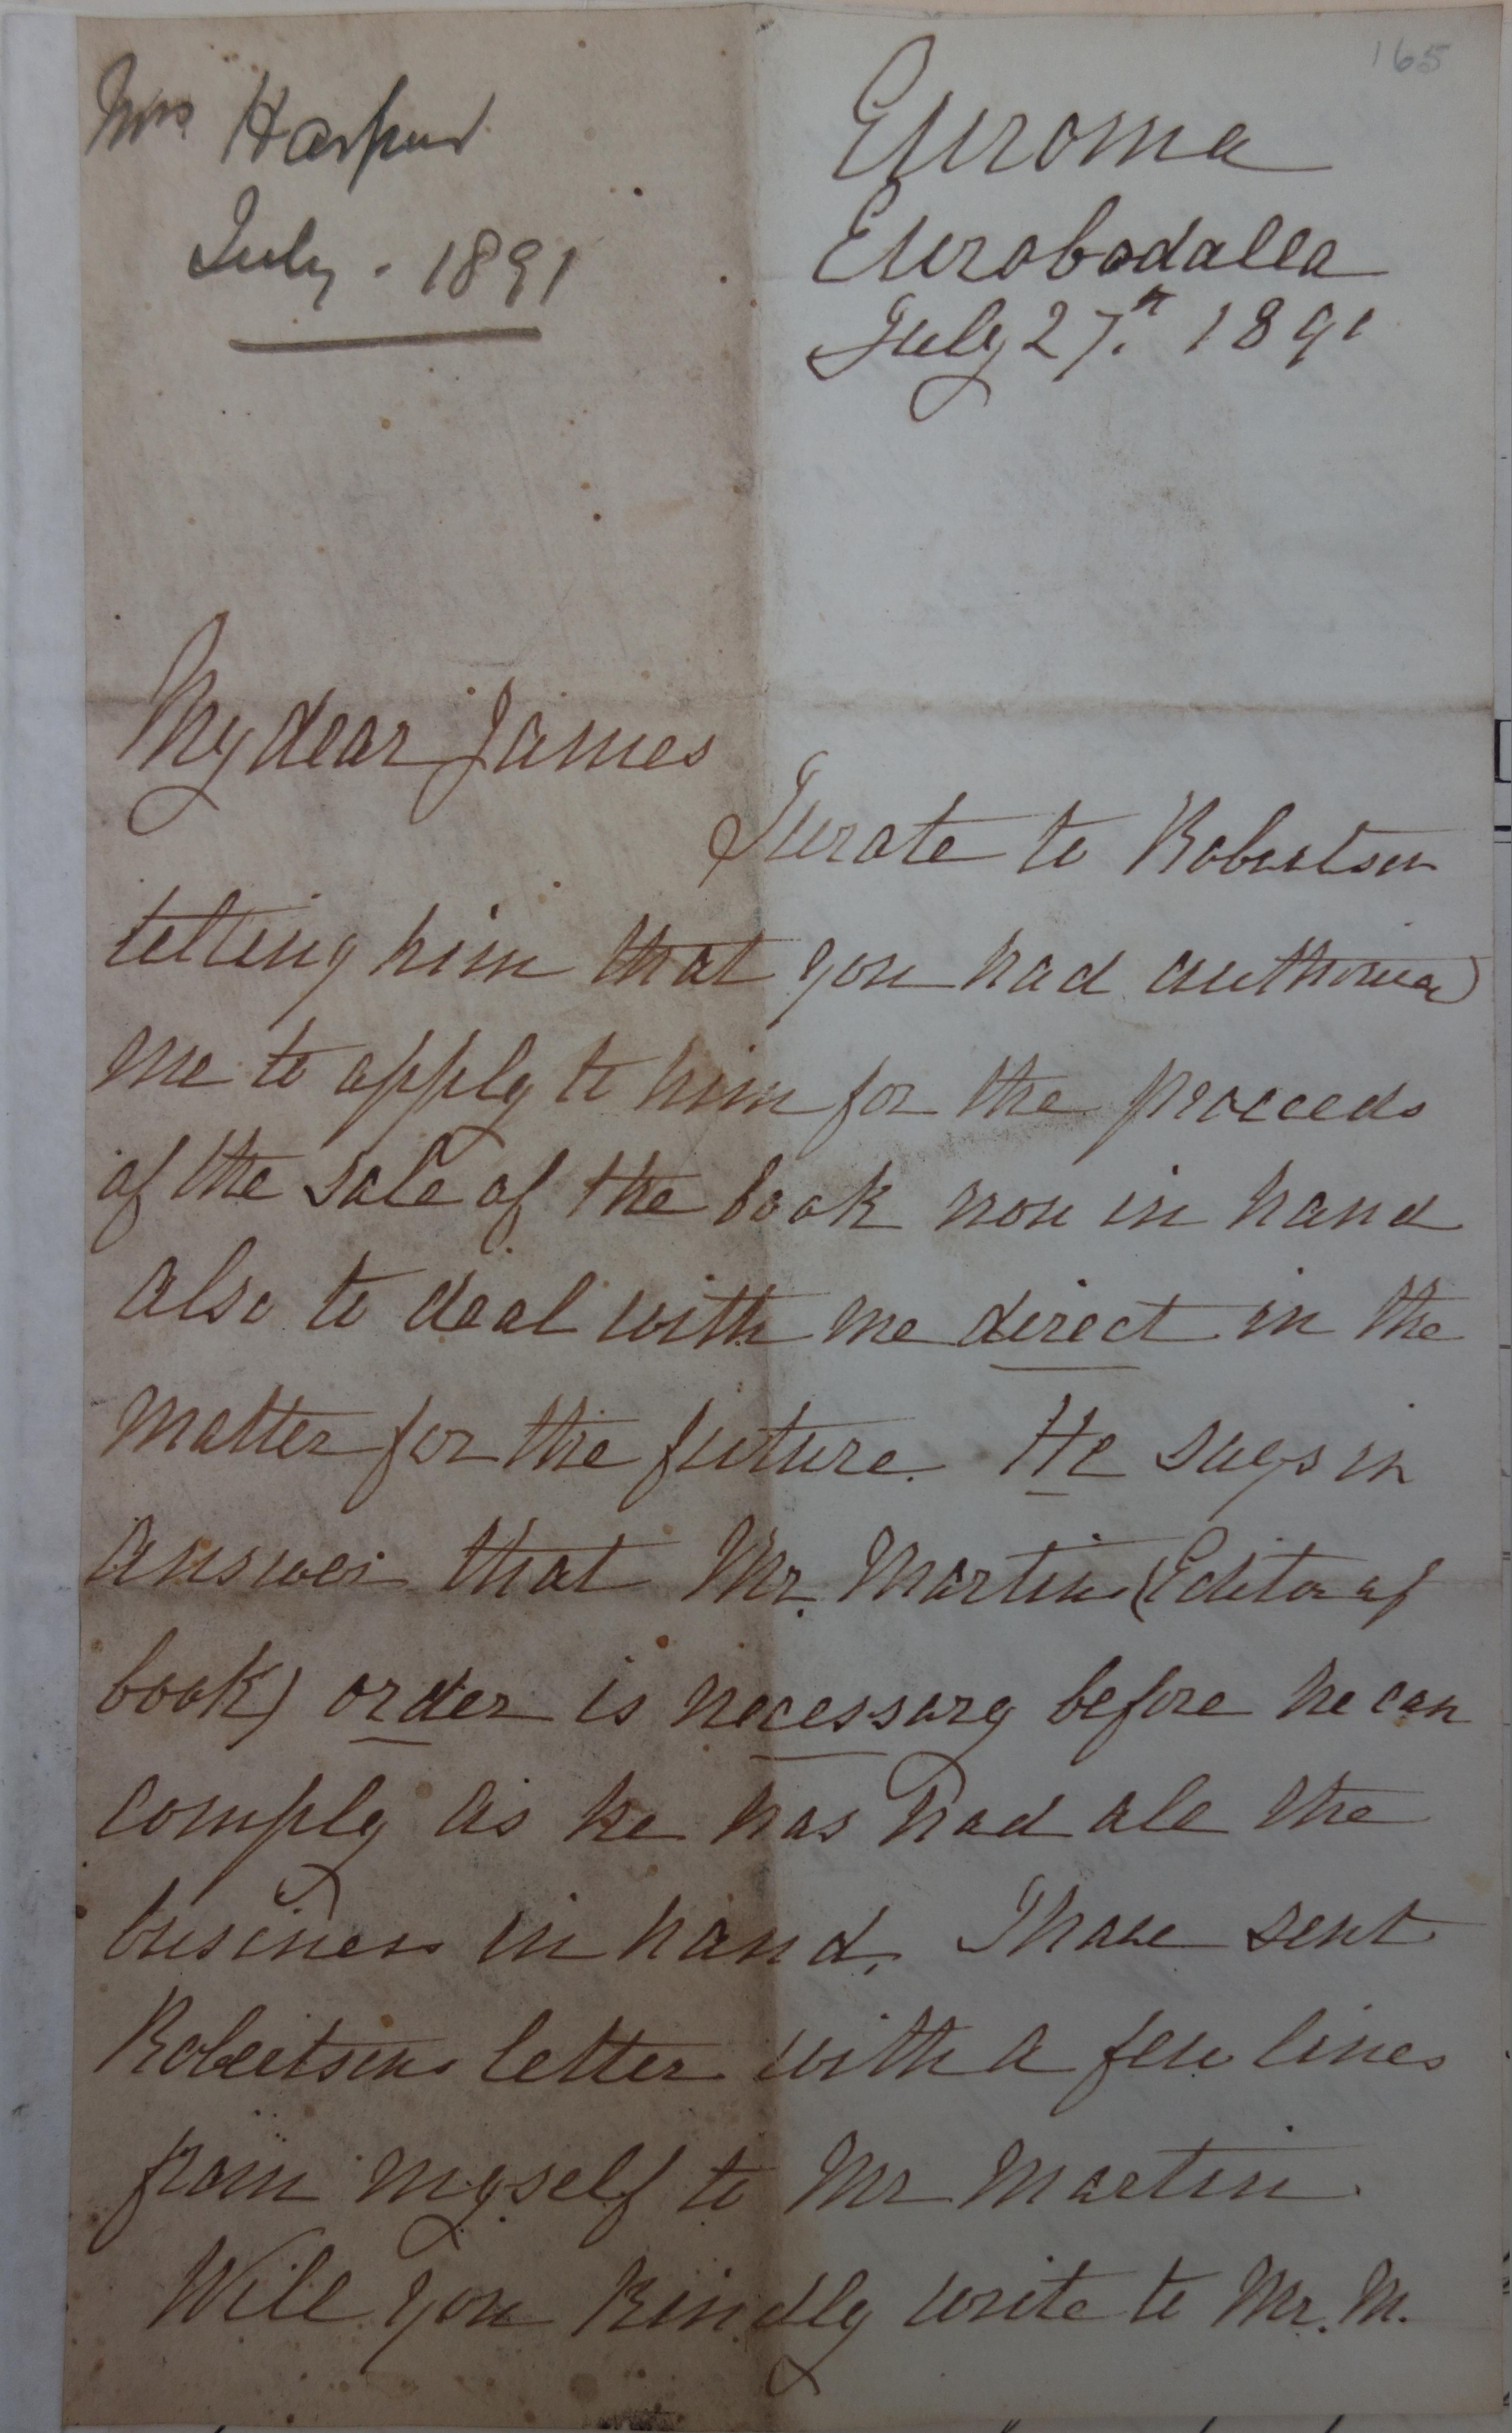 165
Mrs Harpur
July - 1891
Euroma
Eurobodalla
July 27th. 1891
My dear James
I wrote to Robertson
telling him that you had authorised
me to apply to him for the proceeds
of the sale of the book now in hand
also to deal with me direct in the
matter for the future. He says in
answer that Mr. Martin (Editor of
book) order is necessary before he can
comply as he has had all the
business in hand. I have sent
Robertsons letter with a few lines
from myself to Mr Martin.
Will you kindly write to Mr. M.